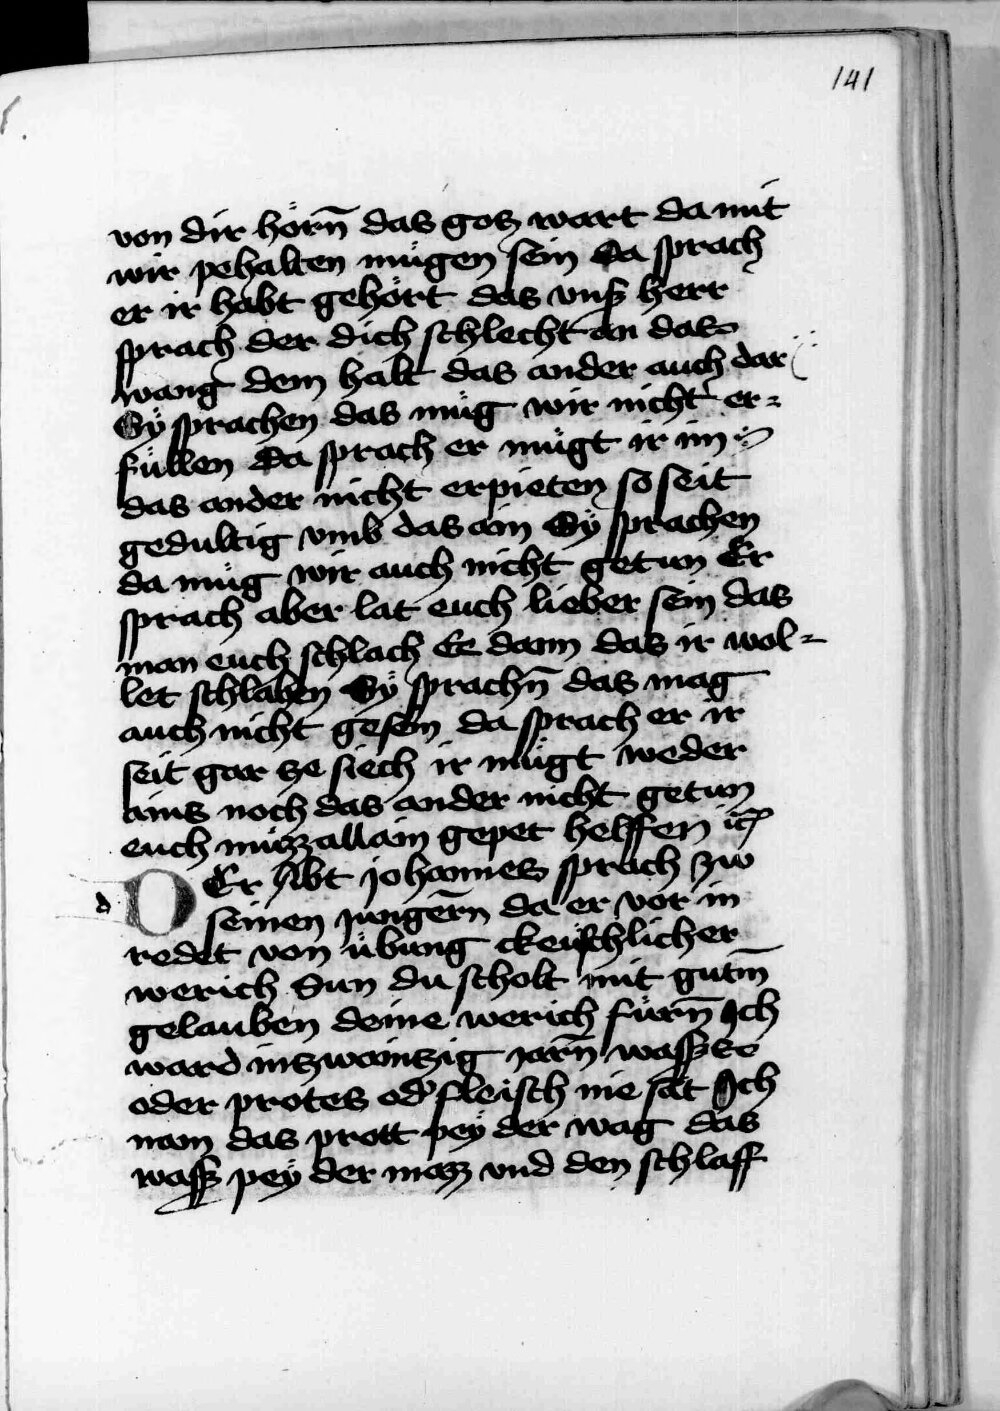 141
von dir hörn̄ das gotz wart da mit
wir pehalten mügen sein Da sprach
er ir habt gehört das vnß herr
sprach der dich schlecht an das
wang dem halt das ander auch dar
Sÿ sprachen das müg wir nicht er=
füllen Da sprach er mügt ir im
das ander nicht erpieten so seit
gedultig vmb das ain Sÿ sprachen
da müg wir auch nicht getun Er
sprach aber lat euch lieber sein das
man euch schlach Ee dann das ir wol=
let schlahen Sÿ sprachn̄ das mag
auch nicht gesein da sprach er ir
seit gar ze siech ir mügt weder
ains noch das ander nicht getun
euch müzz allain gepet helffen
d
DEr Abt johannes sprach zw
seinen jungern̄ da er vor in
redet von übung ckeüschlicher
werich Sun du scholt mit gutm̄
gelauben deine werich fürn̄ Ich
ward in tzwaintzig jarn̄ wasses
oder protes od' fleisch nie sat Ich
nam das prott peÿ der wag das
wasß peÿ der mazz vnd den schlaff